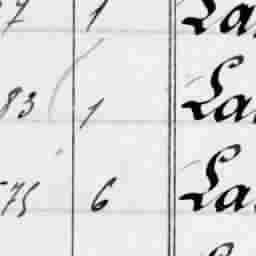 7 1 La
83 1 La
75 6 La